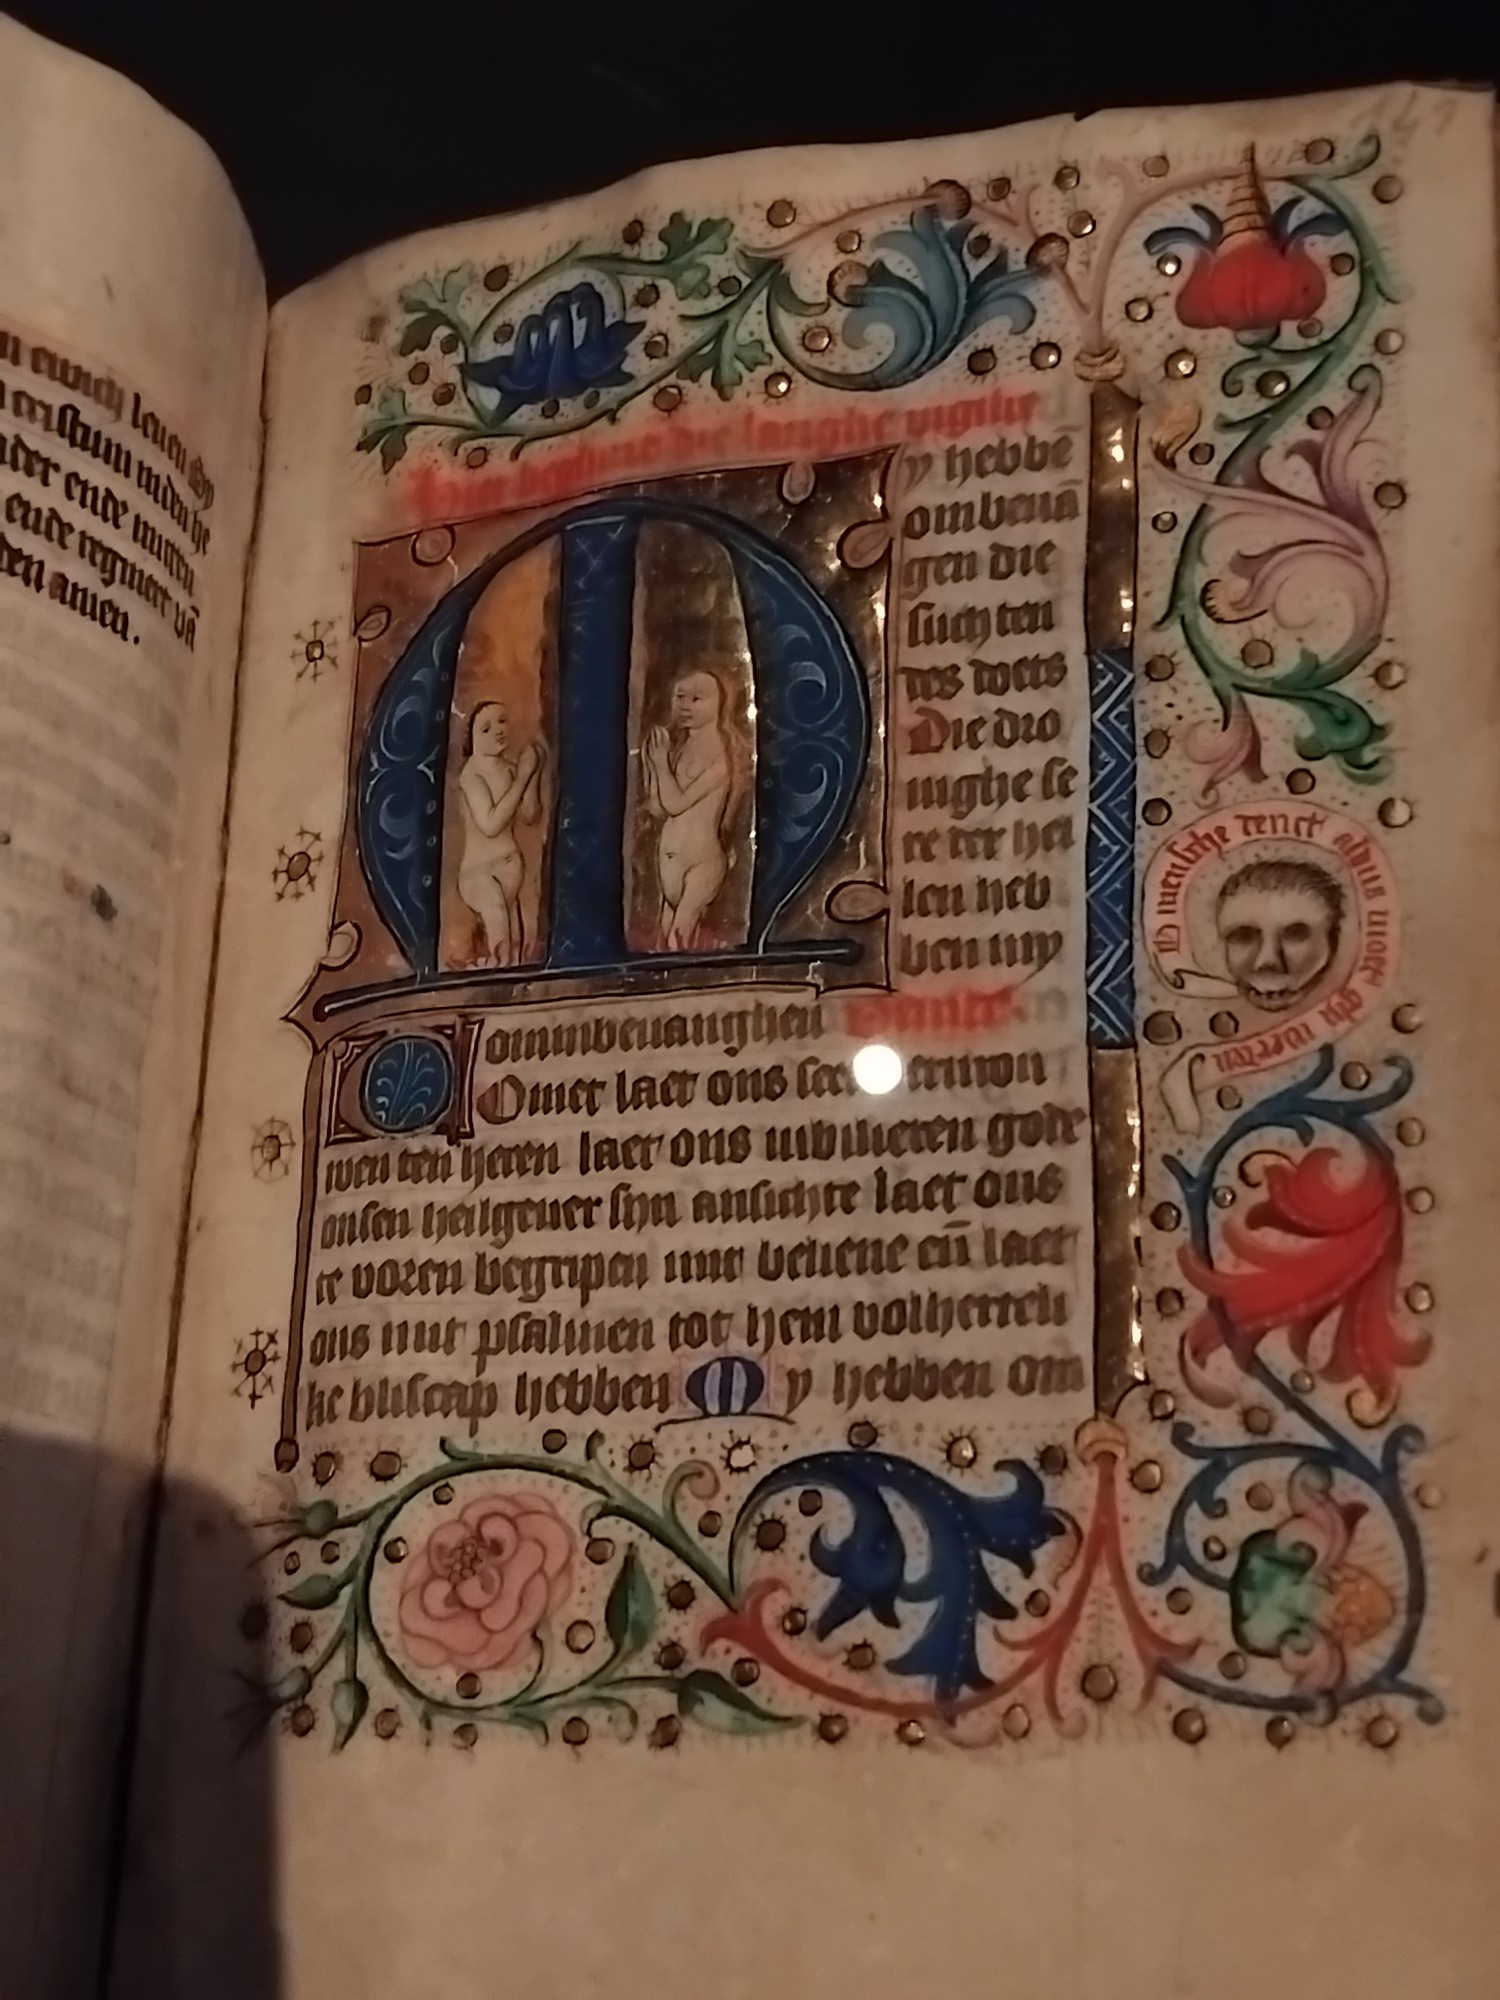 n ewich leuen By
cristum inden he
ader ende mitten
ende regniert vā
den amen.
Hier beghint die langhe vigilie
My hebbē
ombeuā
gen die
suchten
des doets
Die dro
nighe se
re der hel
len heb
ben my
ommbeuanghen
Comet laet ons
wen den heren laet ons iubilieren gode
onsen heilgeuer sijn ansichte laet ons
te voren begripen mit beliene eñ laet
ons mit psalmen tot hem volherteli
ke bliscap hebben My hebben om
O mensche denct aldus moet ghi werden
141